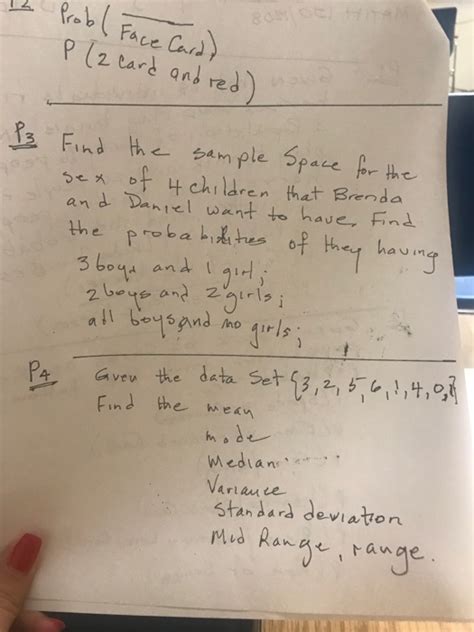 P2 Prob ( Face Card )
P (2 card and red)
P3 Find the sample Space for the
sex of 4 children that Brenda
and Daniel want to have. Find
the probabilities of they having
3 boys and 1 girl;
2 boys and 2 girls;
all boys and no girls;
P4 Given the data set {3, 2, 5, 6, 1, 4, 0, }
Find the mean
mode
Median
Variance
Standard deviation
Mid Range, range.